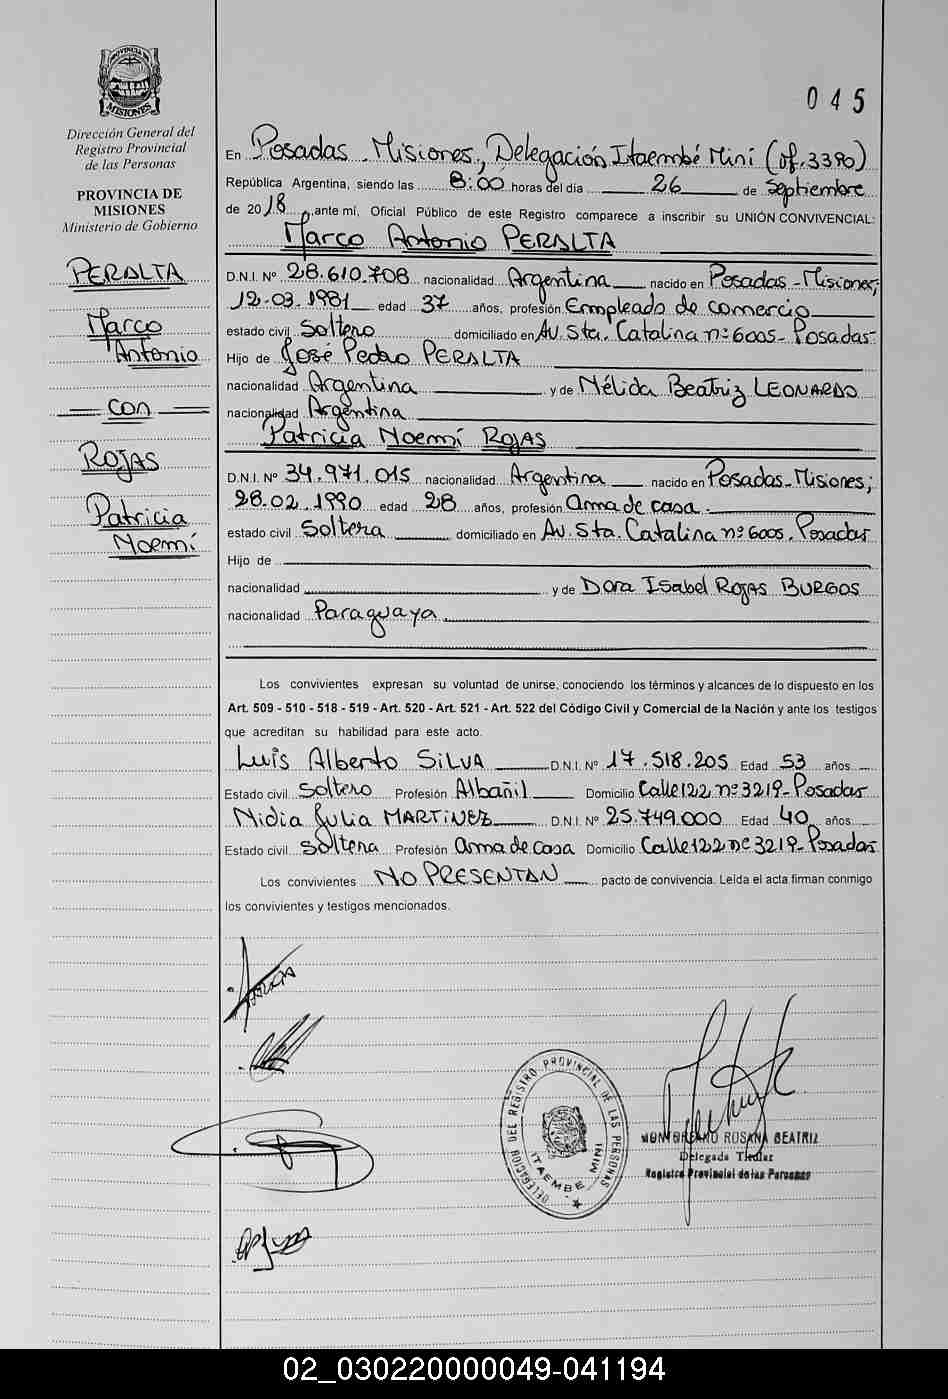 PROVINCIA DE
MISIONES
Dirección General del
Registro Provincial
de las Personas
PROVINCIA DE
MISIONES
Ministerio de Gobierno
PERALTA
Marco
Antonio
con
ROJAS
Patricia
Noemí
045
En Posadas - Misiones, Delegación Itaembé Miní (of. 3390)
República Argentina, siendo las 8:00 horas del día 26 de Septiembre
de 2018, ante mí, Oficial Público de este Registro comparece a inscribir su UNIÓN CONVIVENCIAL:
Marco Antonio PERALTA
D.N.I. Nº 28.610.708 nacionalidad Argentina nacido en Posadas - Misiones;
12-03-1981 edad 37 años, profesión Empleado de comercio
estado civil Soltero domiciliado en Av. Sta. Catalina nº 6005 - Posadas
Hijo de José Pedro PERALTA
nacionalidad Argentina y de Nélida Beatriz LEONARDO
nacionalidad Argentina
Patricia Noemí ROJAS
D.N.I. Nº 34.971.015 nacionalidad Argentina nacido en Posadas - Misiones;
28.02.1990 edad 28 años, profesión Ama de casa
estado civil Soltera domiciliado en Av. Sta. Catalina nº 6005. Posadas
Hijo de
nacionalidad y de Dora Isabel ROJAS BURGOS
nacionalidad Paraguaya
Los convivientes expresan su voluntad de unirse, conociendo los términos y alcances de lo dispuesto en los
Art. 509 - 510 - 518 - 519 - Art. 520 - Art. 521 - Art. 522 del Código Civil y Comercial de la Nación y ante los testigos
que acreditan su habilidad para este acto.
Luis Alberto SILVA D.N.I. Nº 17.518.205 Edad 53 años
Estado civil Soltero Profesión Albañil Domicilio Calle 122 nº 3219 - Posadas
Nidia Julia MARTINEZ D.N.I. Nº 25.749.000 Edad 40 años
Estado civil Soltera Profesión Ama de casa Domicilio Calle 122 nº 3219 - Posadas
Los convivientes NO PRESENTAN pacto de convivencia. Leída el acta firman conmigo
los convivientes y testigos mencionados.
DELEGACION DEL REGISTRO PROVINCIAL DE LAS PERSONAS
ITAEMBE MINI
ROSANA BEATRIZ
Delegada Titular
Registro Provincial de las Personas
02_030220000049-041194